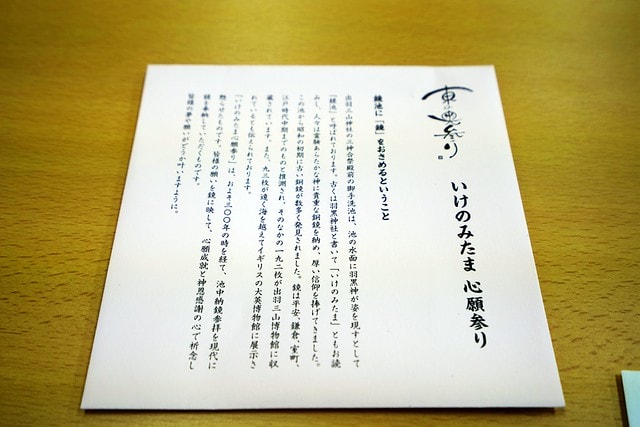 東の奥参り
いけのみたま 心願参り
鏡池に「鏡」をおさめるということ
出羽三山神社の三神合祭殿前の御手洗池は、池の水面に羽黒神が姿を現すとして
「鏡池」と呼ばれております。古くは羽黒神社と書いて「いけのみたま」ともお読
みし、人々は霊験あらたかな神に貴重な銅鏡を納め、厚い信仰を捧げてきました。
この池から昭和の初期に古い銅鏡が数多く発見されました。鏡は平安、鎌倉、室町、
江戸時代中期までのものと推測され、そのなかの一九二枚が出羽三山博物館に収
蔵されています。また、九三枚が遠く海を越えてイギリスの大英博物館に展示さ
れていると伝えられております。
「いけのみたま心願参り」は、およそ三〇〇年の時を経て、池中納鏡参拝を現代に
懸らせたものです。皆様の願いを鏡に映して、心願成就と神恩感謝の心で祈念し
鏡を奉納していただくものです。
皆様の夢や願いがどうか叶いますように。